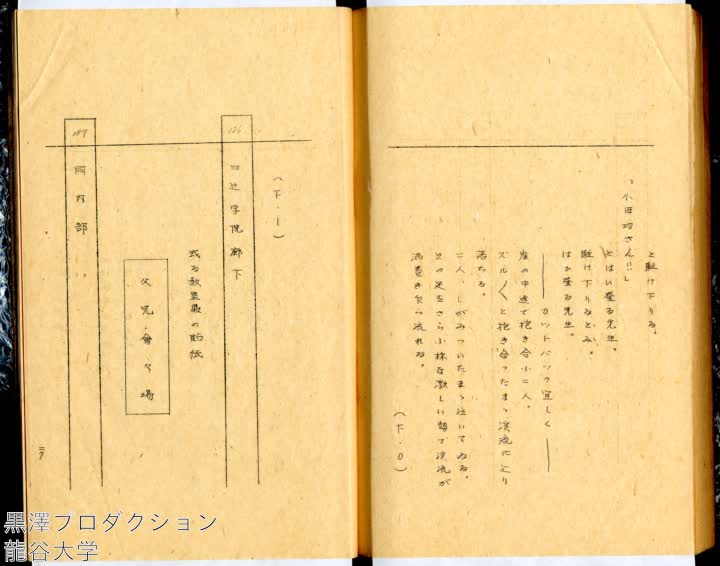 と駈け下りる。
「小田切さん!!」
とはい登る先生。
駈け下りるとみ。
はひ登る先生。
――カットバック宜しく――
崖の中途で抱き合ふ二人。
ズル〱と抱き合つたまゝ渓流に辷り
落ちる。
二人、しがみついたまゝ泣いてゐる。
その足をさらふ様な激しい勢で渓流が
渦巻き乍ら流れる。
(下.O)
(下.I)
126
四辻学院廊下
或る教室扉の貼紙
父兄會々場
187
同内部
黒澤プロダクション
龍谷大学